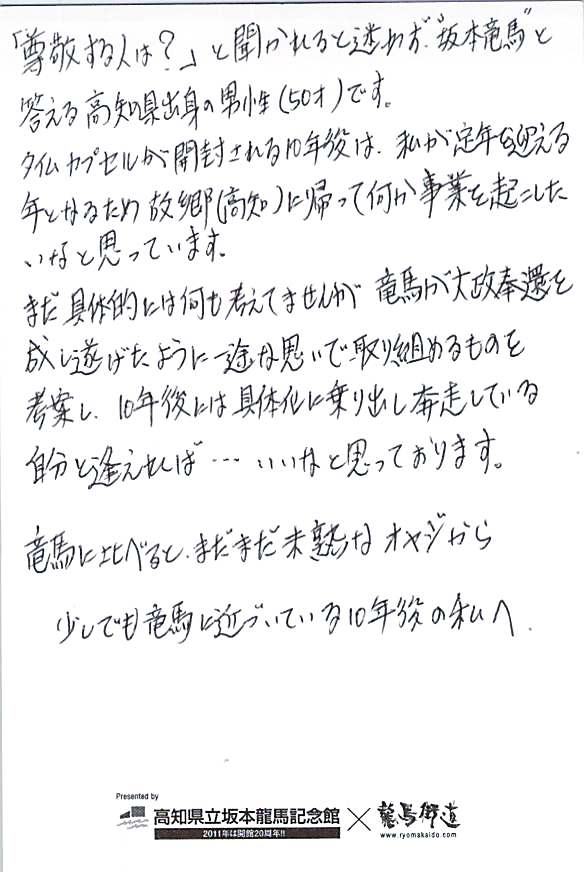 「尊敬する人は？」と聞かれると迷わず"坂本竜馬"と
答える高知県出身の男性(50才)です。
タイムカプセルが開封される10年後は、私が定年を迎える
年となるため故郷(高知)に帰って何か事業を起こした
いなと思っています。
まだ具体的には何も考えてませんが 竜馬が大政奉還を
成し遂げたように一途な思いで取り組めるものを
考案し、10年後には具体化に乗り出し奔走している
自分と逢えれば…いいなと思っております。
竜馬に比べると、まだまだ未熟なオヤジから
少しでも竜馬に近づいている10年後の私へ
Presented by
高知県立坂本龍馬記念館 × 龍馬街道
2011年は開館20周年!!
www.ryomakaido.com